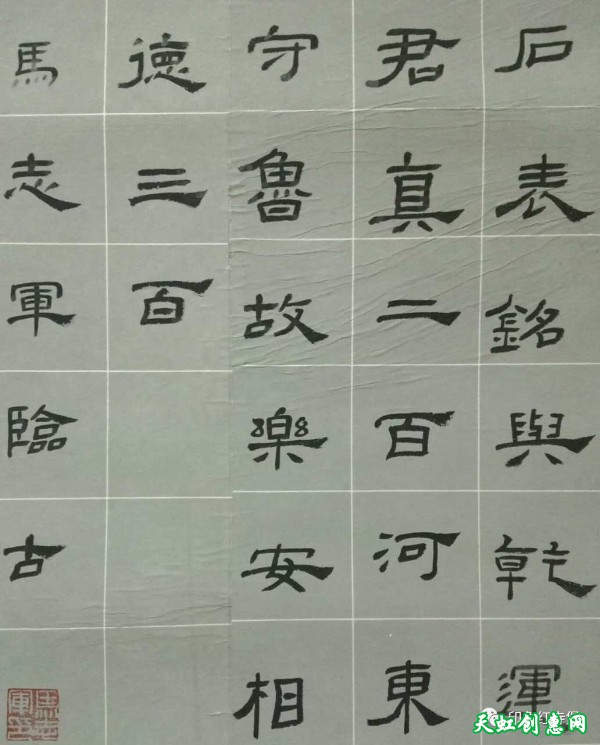 石表銘與乾運
君真二百河東
守魯故樂安相
德三百
馬志軍臨古
馬志軍印
天虹创意网